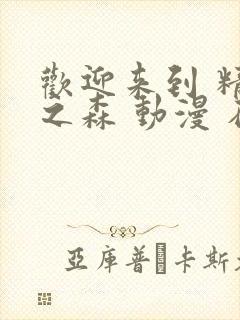 歡迎来到 精
之森 動漫
亞庫普·卡斯